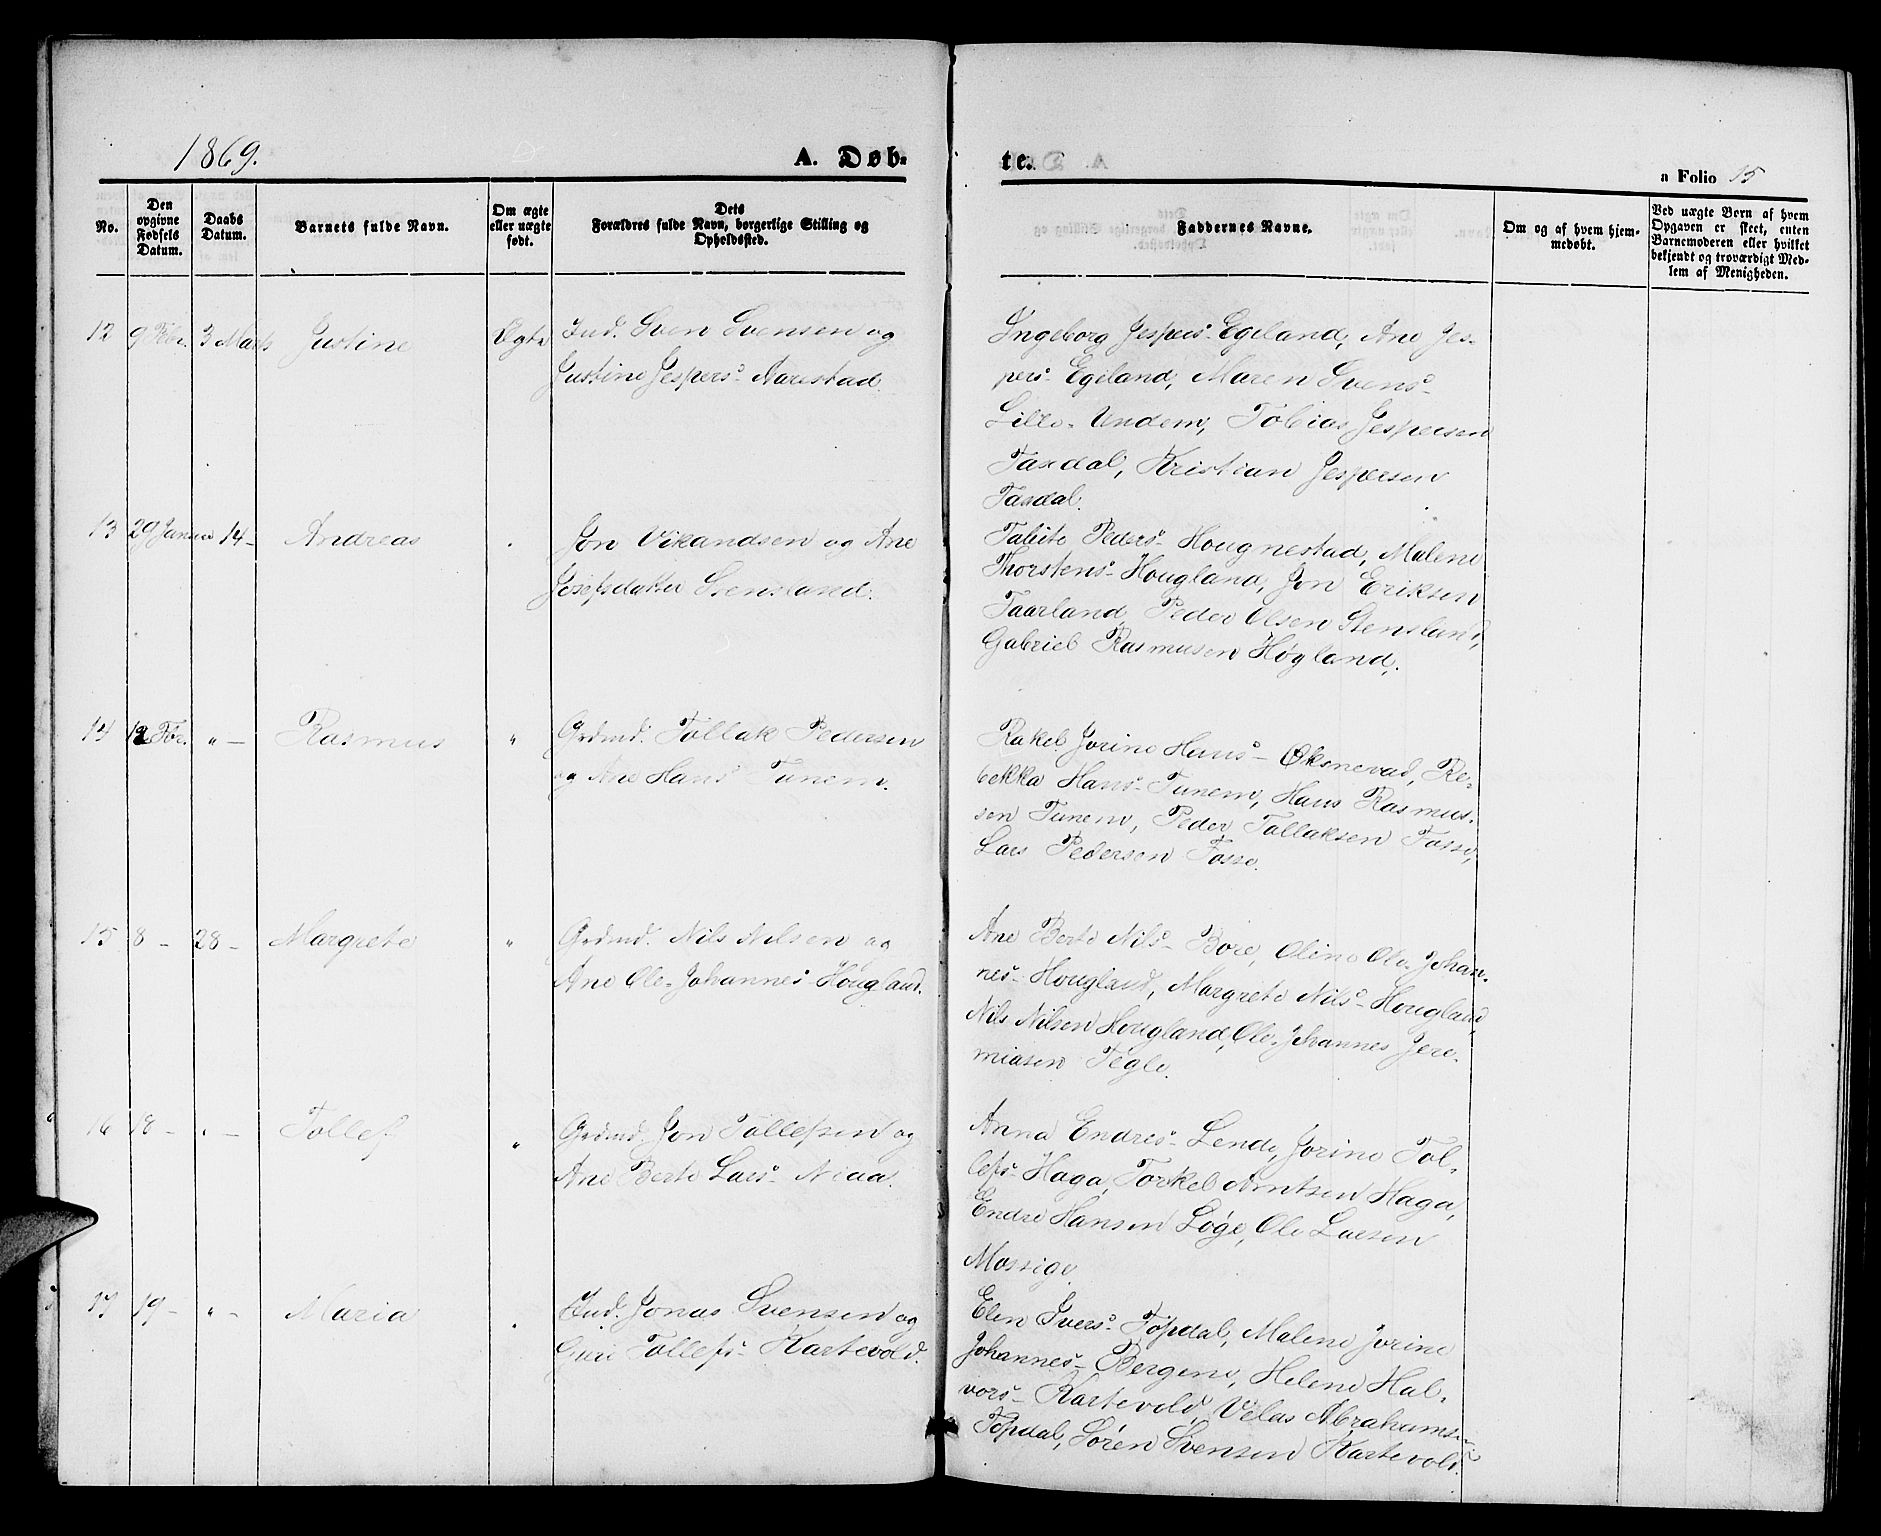 1869.
A. Døb-
te.
a Folio 15
No.
Den opgivne Fødsels Datum.
Daabs Datum.
Barnets fulde Navn.
Om ægte eller uægte født.
Dets Forældres fulde Navn, borgerlige Stilling og Opholdssted.
Faddernes Navne.
Om og af hvem hjemmedøbt.
Ved uægte Børn af hvem Opgaven er skeet, enten Barnemoderen eller hvilket bekjendt og troværdigt Medlem af Menigheden.
12 9 Febr. 3 Marts Justine Ægte Ind. Sven Svensen og
Justine Jespers- Aarestad.
Ingeborg Jespers- Egeland, Ane Jes-
pers- Egeland, Maren Svens-
Lille-Undem, Tobias Jespersen
Taxdal, Kristian Jespersen
Taxdal.
13 29 Januar 14 - Andreas Jon Vikandsen og Ane
Josefsdatter Stensland.
Talite Peders- Hougnestad, Malene
Thorstens- Hougland, Jon Eriksen
Taarland, Peder Olsen Stensland,
Gabriel Rasmusen Høgland.
14 12 Febr. " - Rasmus " Grdmd. Tollak Pedersen
og Ane Hans- Tunem.
Rakel Jorine Hans- Øksnevad, Re-
bekka Hans- Tunem, Hans Rasmus-
sen Tunem, Peder Tollaksen Fosse,
Lars Pedersen Fosse.
15 8 - 28 - Margrete " Grdmd. Nils Nilsen og
Ane Ole-Johannes- Hougland.
Ane Berte Nils- Bore, Oline Ole-Johan-
nes- Hougland, Margrete Nils- Hougland
Nils Nilsen Hougland, Ole-Johannes Jere-
miasen Tegle.
16 18 - " - Tollef " Grdmd. Jon Tollefsen og
Ane Berte Lars- Niaa.
Anna Endres- Lende, Jorine Tol-
lefs- Haga, Torkel Arntsen Haga,
Endre Hansen Løge, Ole Larsen
Mossige.
17 19 - " - Maria " Ind. Jonas Svensen og
Guri Tollefs- Kartevold.
Elen Svers- Topdal, Malene Jorine
Johannes- Bergene, Helene Hal-
vors- Kartevold, Velas Abrahamsen
Topdal, Søren Svensen Kartevold.